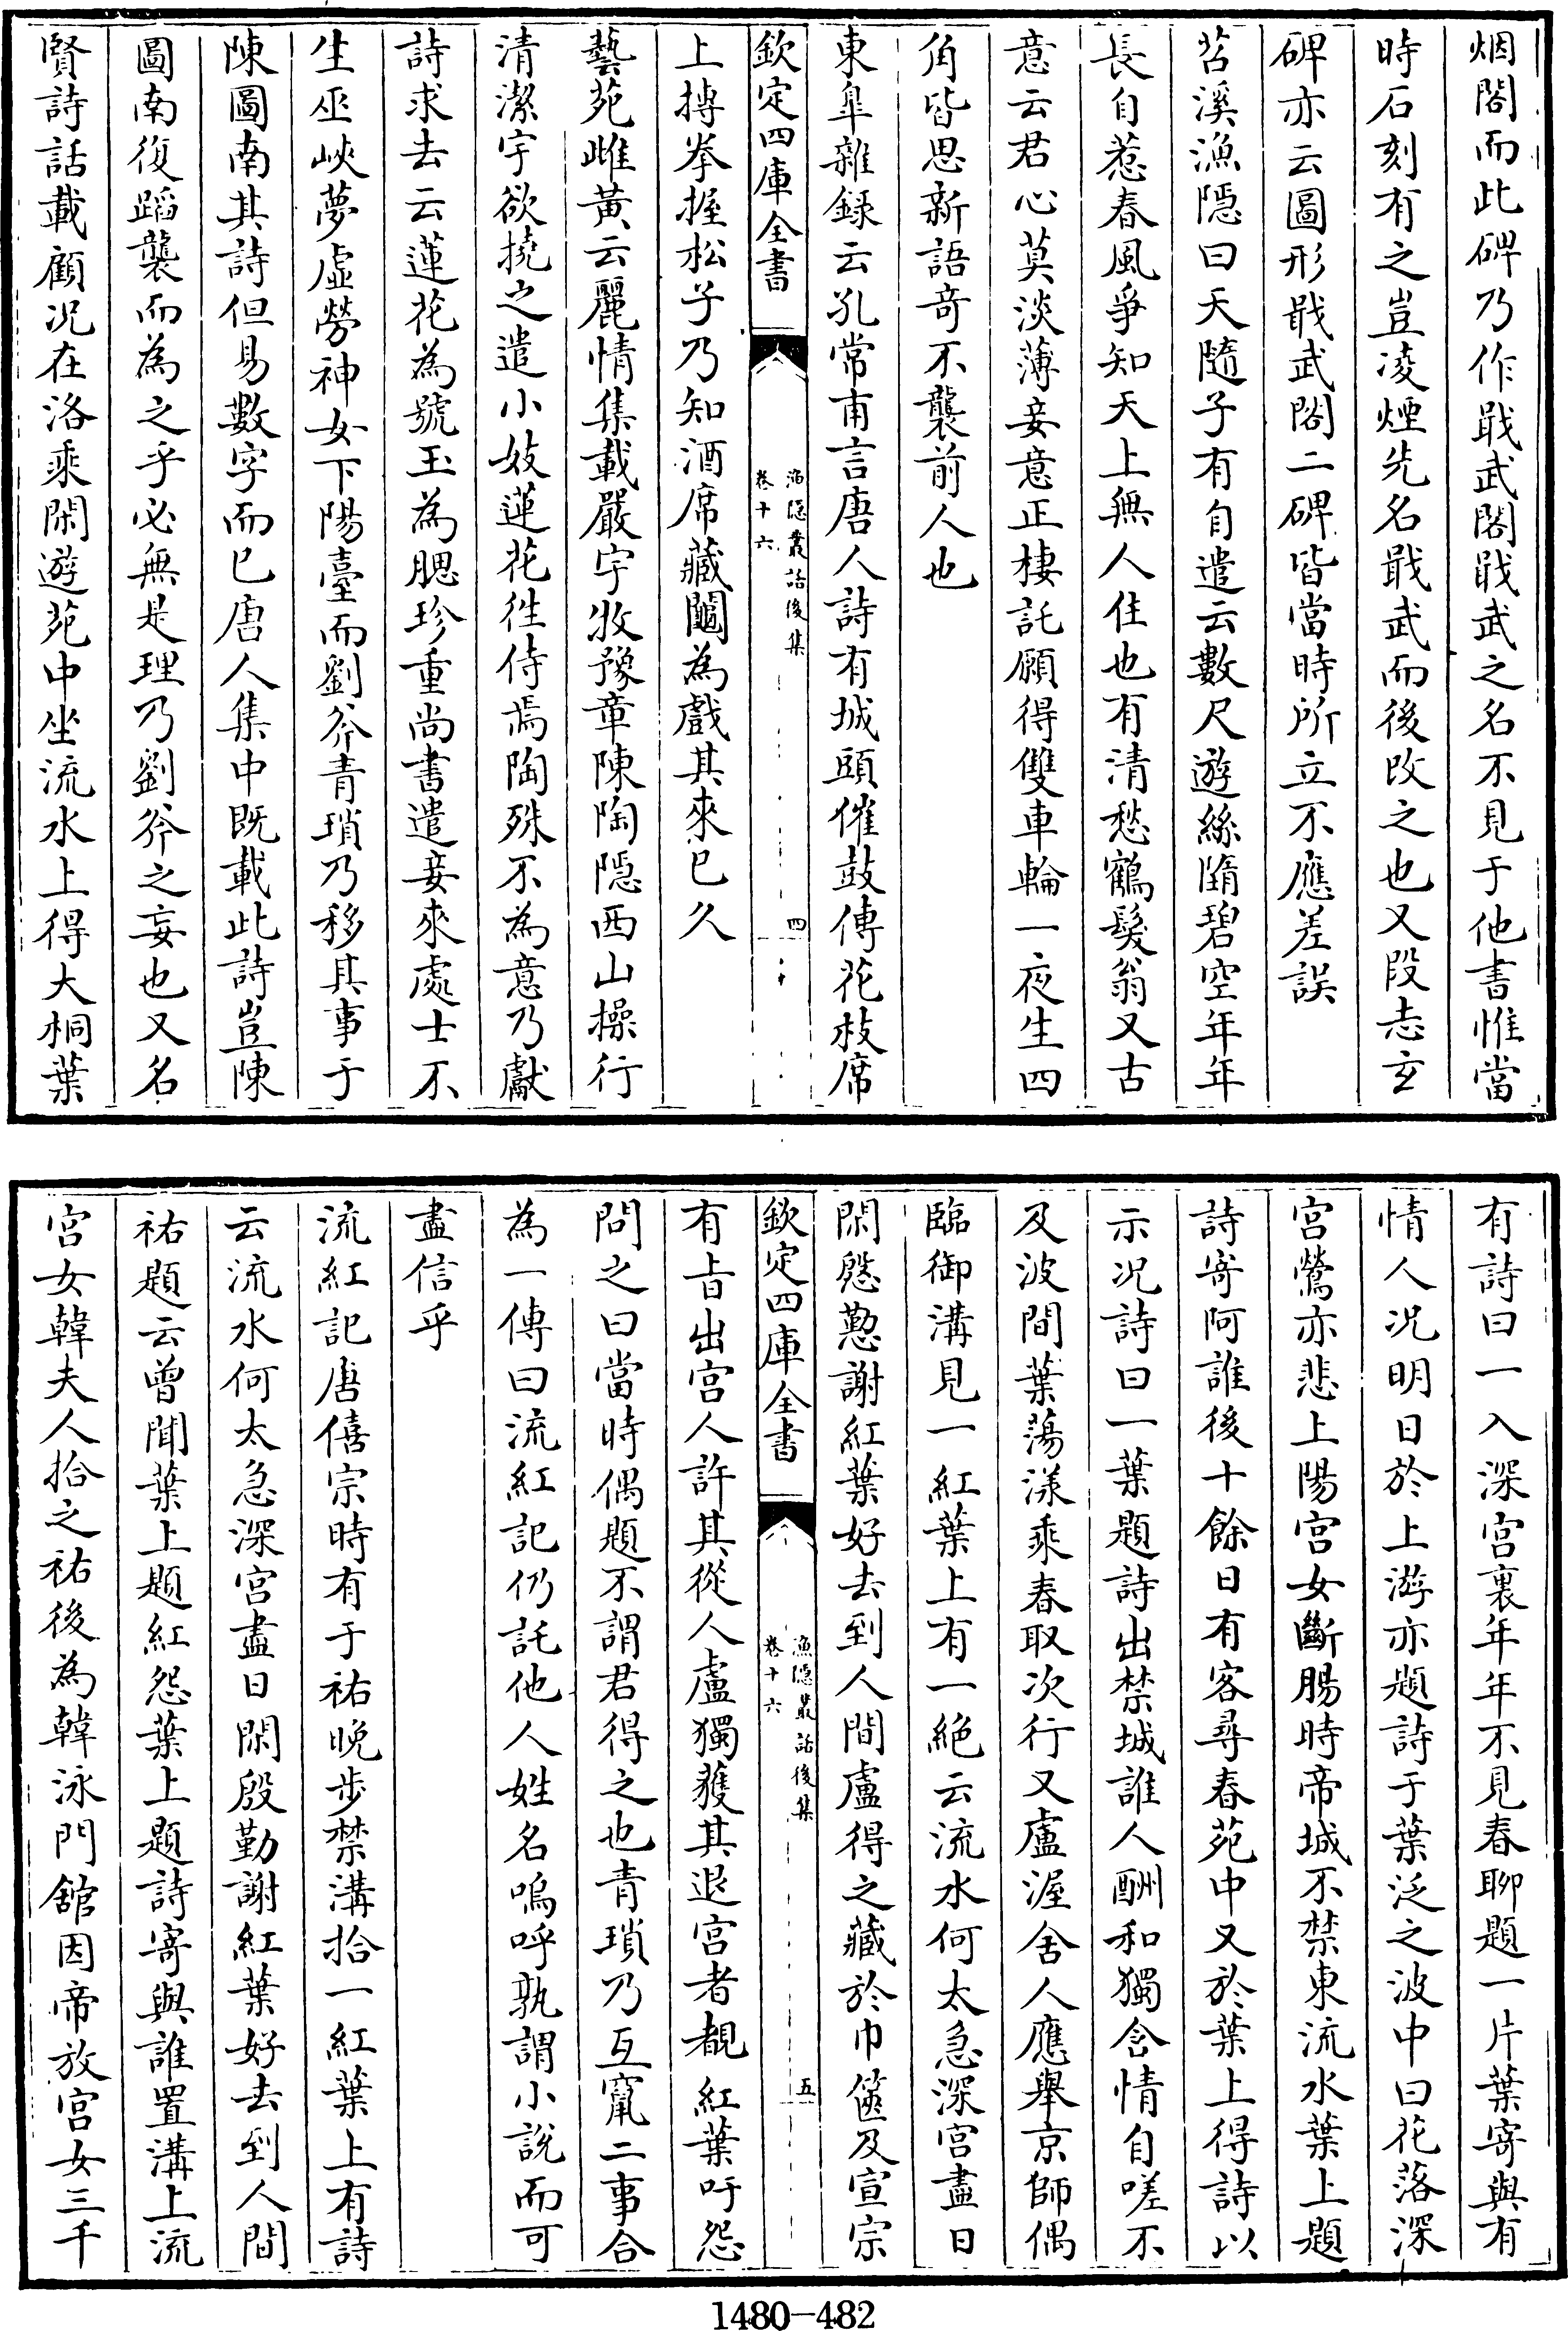 烟閣而此碑乃作戢武閣戢武之名不見于他書惟當
時石刻有之豈凌煙先名戢武而後改之也又段志玄
碑亦云圖形戢武閣二碑皆當時所立不應差誤
苕溪漁隠曰天隨子有自遣云數尺遊絲墮碧空年年
長自惹春風爭知天上無人住也有清愁鶴髮翁又古
意云君心莫淡薄妾意正棲託願得雙車輪一夜生四
角皆思新語奇不襲前人也
東臯雜録云孔常甫言唐人詩有城頭催鼓傳花枝席
欽定四庫全書
漁隠叢話後集
卷十六
四
上搏拳握松子乃知酒席藏鬮為戲其來已久
藝苑雌黃云麗情集載嚴宇牧豫章陳陶隠西山操行
清潔宇欲撓之遣小妓蓮花往侍焉陶殊不為意乃獻
詩求去云蓮花為號玉為腮珍重尚書遣妾來處士不
生巫峽夢虛勞神女下陽臺而劉斧青瑣乃移其事于
陳圖南其詩但易數字而已唐人集中既載此詩豈陳
圖南復蹈襲而為之乎必無是理乃劉斧之妄也又名
賢詩話載顧况在洛乘閑遊苑中坐流水上得大桐葉
有詩曰一入深宫裏年年不見春聊題一片葉寄與有
情人况明日於上游亦題詩于葉泛之波中曰花落深
宫鶯亦悲上陽宫女斷腸時帝城不禁東流水葉上題
詩寄阿誰後十餘日有客尋春苑中又於葉上得詩以
示况詩曰一葉題詩出禁城誰人酬和獨含情自嗟不
及波間葉蕩漾乘春取次行又盧渥舍人應舉京師偶
臨御溝見一紅葉上有一絶云流水何太急深宫盡日
閑慇懃謝紅葉好去到人間盧得之藏於巾篋及宣宗
欽定四庫全書
漁隠叢話後集
卷十六
五
有旨出宫人許其從人盧獨獲其退宫者覩紅葉吁怨
問之曰當時偶題不謂君得之也青瑣乃互竄二事合
為一傳曰流紅記仍託他人姓名嗚呼孰謂小說而可
盡信乎
流紅記唐僖宗時有于祐晚步禁溝拾一紅葉上有詩
云流水何太急深宫盡日閑殷勤謝紅葉好去到人間
祐題云曾聞葉上題紅怨葉上題詩寄與誰置溝上流
宫女韓夫人拾之祐後為韓泳門舘因帝放宫女三千
1480-482